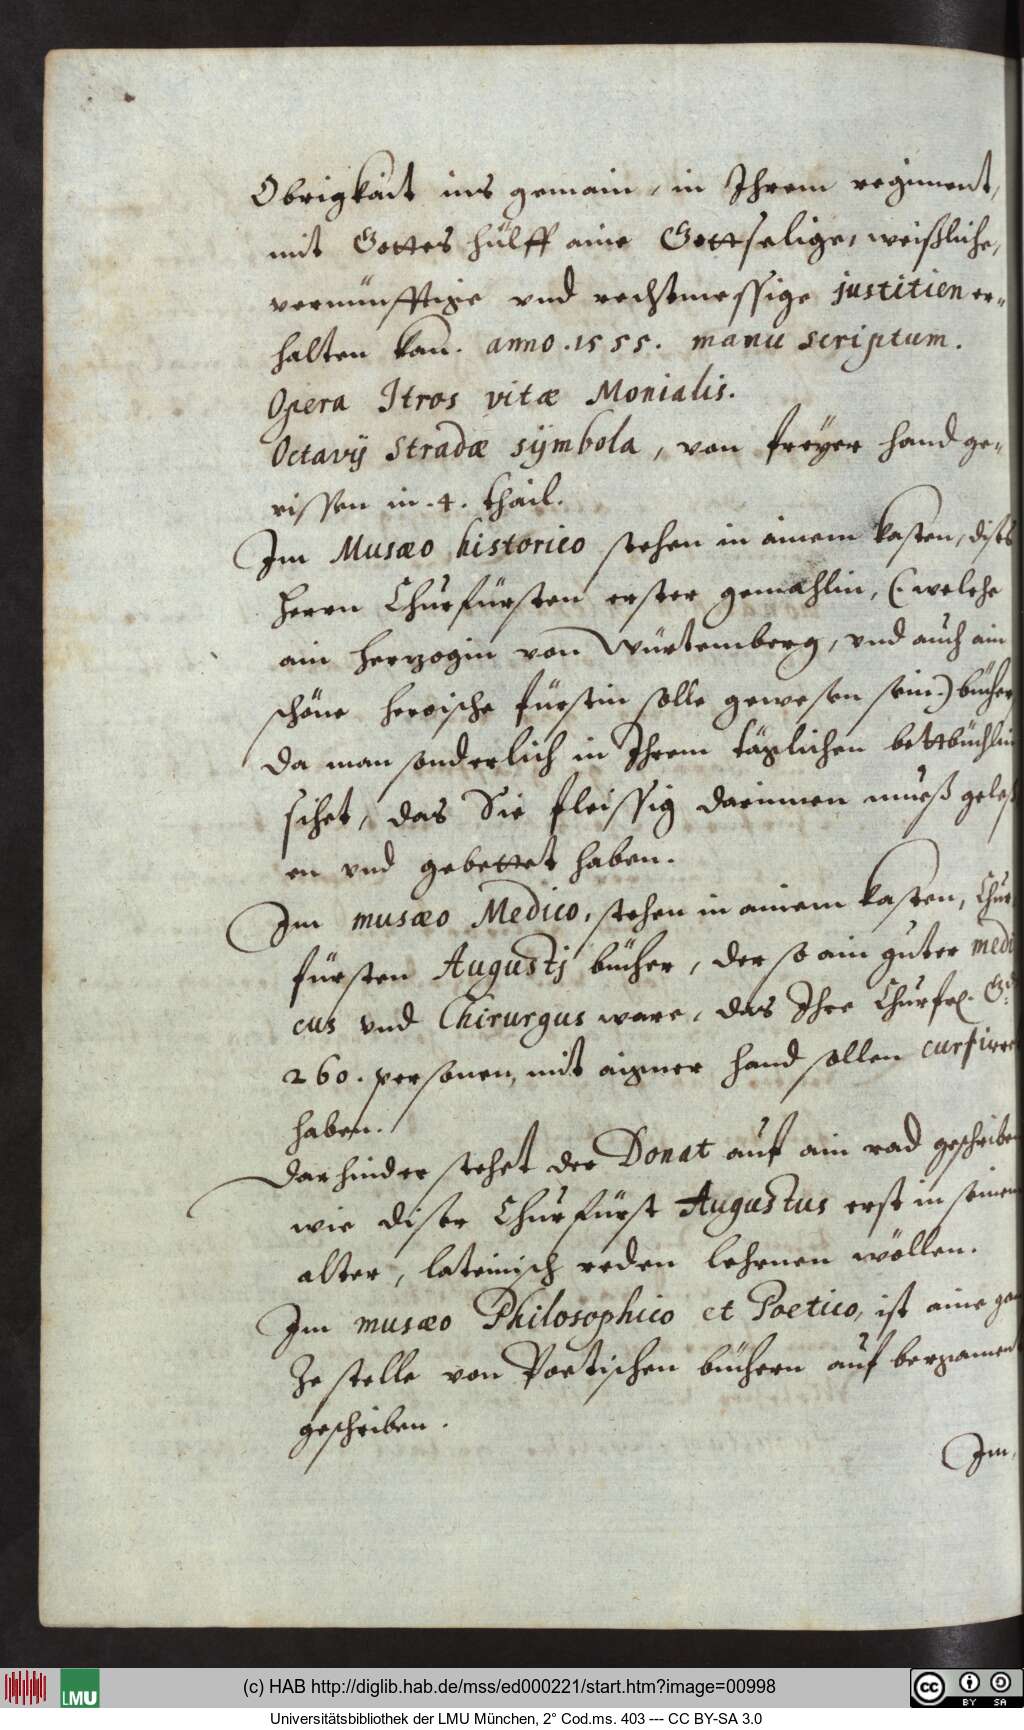 Obrigkait ins gemain, in Ihrem regiment,
mit Gottes hülff aine Gottselige, weißliche,
vernünfftige vnd rechtmessige justitien er-
halten kan. anno .1555. manu scriptum.
Opera Itros vitæ Monialis.
Octavij Stradæ sÿmbola, von freÿer hand ge-
rissen in .4. thail.
Im Musæo historico stehen in ainem kasten, dises
Herrn Churfürsten erster gemahlin, (welche
ain herzogin von Würtemberg, vnd auch ain
schöne heroische fürstin solle gewesen sein.) bücher
da man sonderlich in Ihrem täglichen bettbüchlin
sihet, das Sie fleissig darinnen mueß geles
en vnd gebettet haben.
Im musæo Medico, stehen in ainem kasten, Chur
fürsten Augustj bücher, der so ain guter medi
cus vnd Chirurgus ware, das Ihre Churfel. Gd.
260. personen, mit aigner hand sollen curfirre
haben.
Darhinder stehet der Donat auf ain rad geschriben
wie diser Churfürst Augustus erst in seinem
alter, lateinisch reden lehrnen wöllen.
Im musæo Philosophico et Poetico, ist aine gan
Ze stelle von Poetischen büchern auf bergament
geschriben.
Im,
LMU
(c) HAB http://diglib.hab.de/mss/ed000221/start.htm?image=00998
cc BY SA
Universitätsbibliothek der LMU München, 2° Cod.ms. 403 --- CC BY-SA 3.0